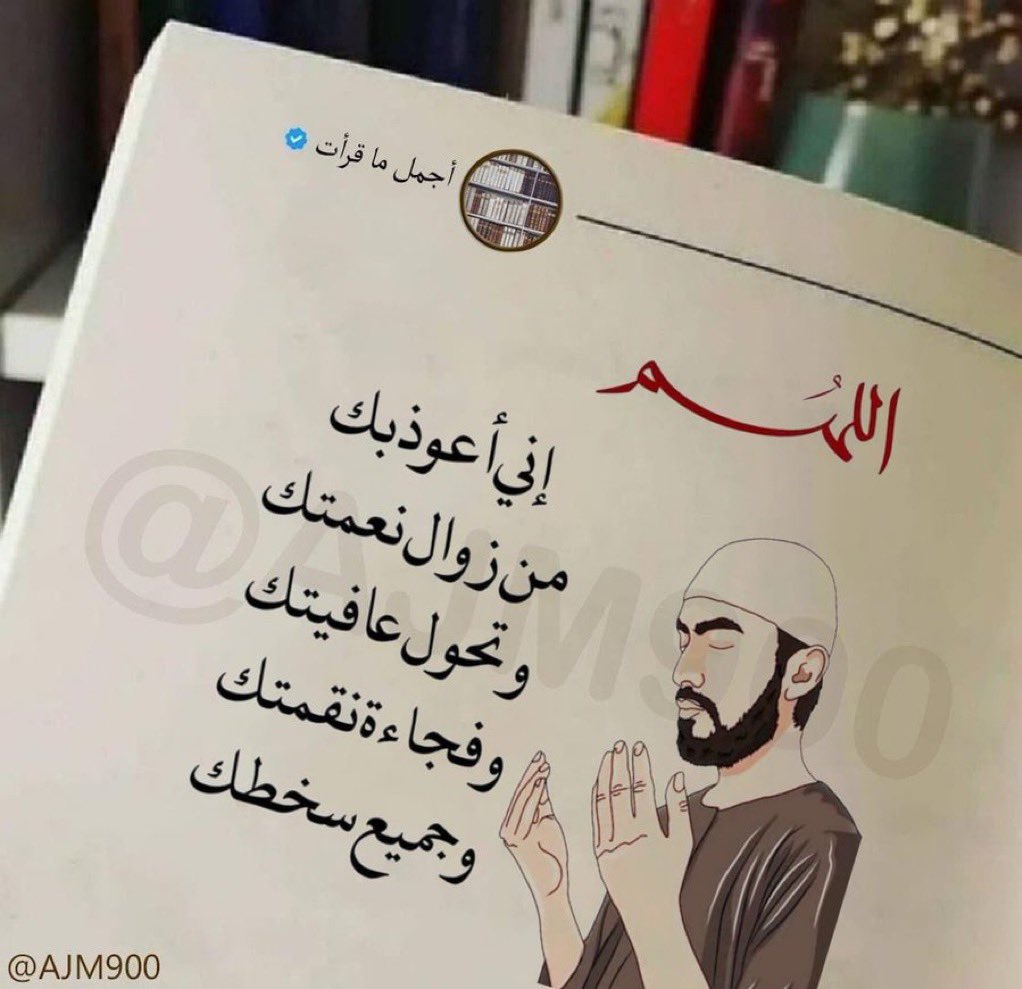 أجمل ما قرأت
اللهُم
إني أعوذ بك
من زوال نعمتك
وتحول عافيتك
وفجاءة نقمتك
وجميع سخطك
@AJM900
@AJM900